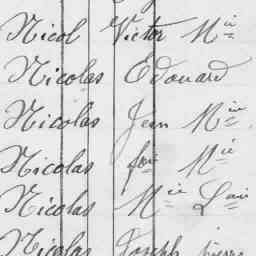 Nicol Victor Mie
Nicolas Edouard
Nicolas Jean Mie
Nicolas Mie
Nicolas Mie
Nicolas Joseph